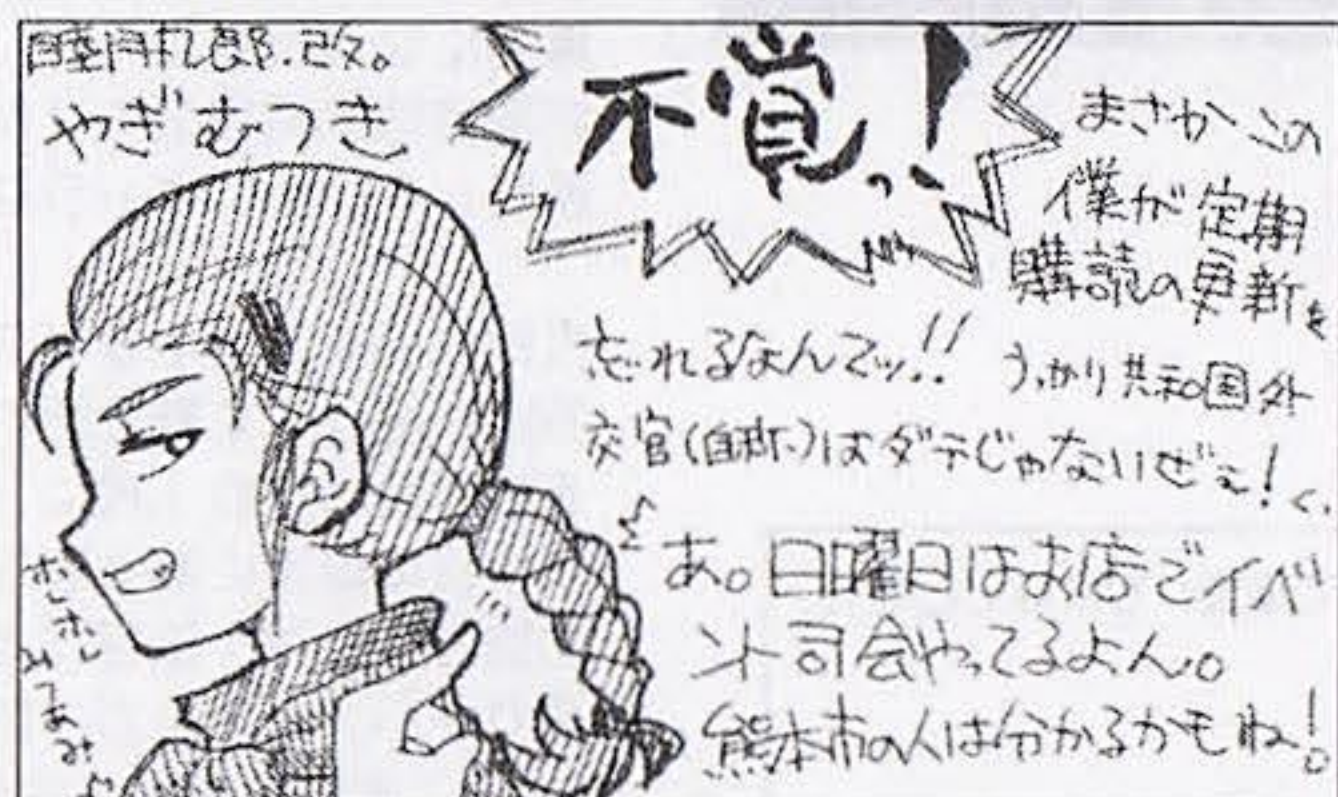 睦月札郎.改。
やぎむつき
不覚っ!
まさかこの
僕が定期
購読の更新を
忘れるなんてッ!!
うっかり共和国外
交官(自称)はダテじゃないぜぇ!
あ。日曜日はお店でイベ
ント司会やってるよん。
熊本市の人は分かるかもね!